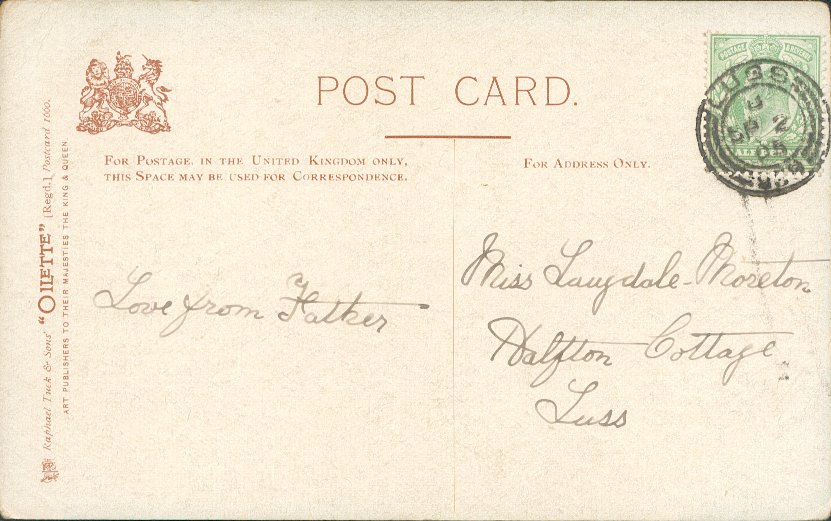 POST CARD.
FOR POSTAGE, IN THE UNITED KINGDOM ONLY,
THIS SPACE MAY BE USED FOR CORRESPONDENCE.
FOR ADDRESS ONLY.
Raphael Tuck & Sons' "OILETTE" [Regd.] Postcard 1660.
ART PUBLISHERS TO THEIR MAJESTIES THE KING & QUEEN.
POSTAGE
LUSS
SP 2
05
Love from Father
Miss Langdale-Moreton
Cottage
Luss